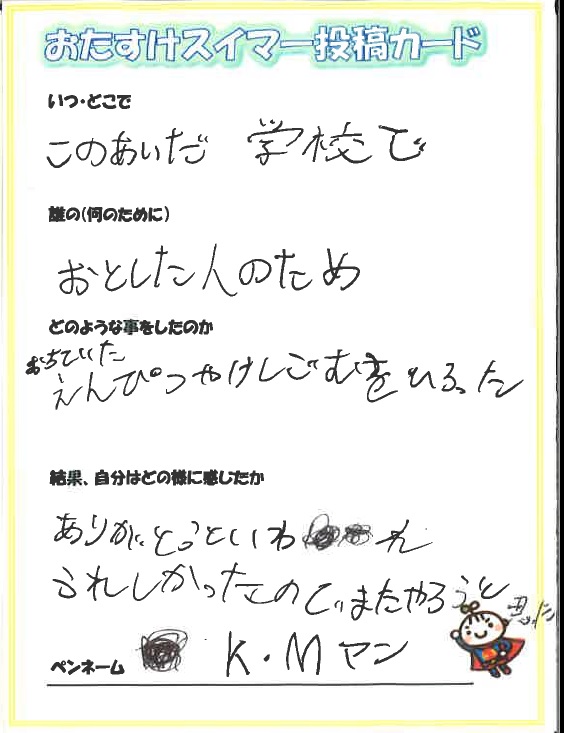 おたすけスイマー投稿カード
いつ・どこで
このあいだ 学校で
誰の(何のために)
おとした人のため
どのような事をしたのか
おちていた
えんぴつやけしごむをひろった
結果、自分はどの様に感じたか
ありがとうといわれ
うれしかったのでまたやろうと
思った
ペンネーム K・Mマン